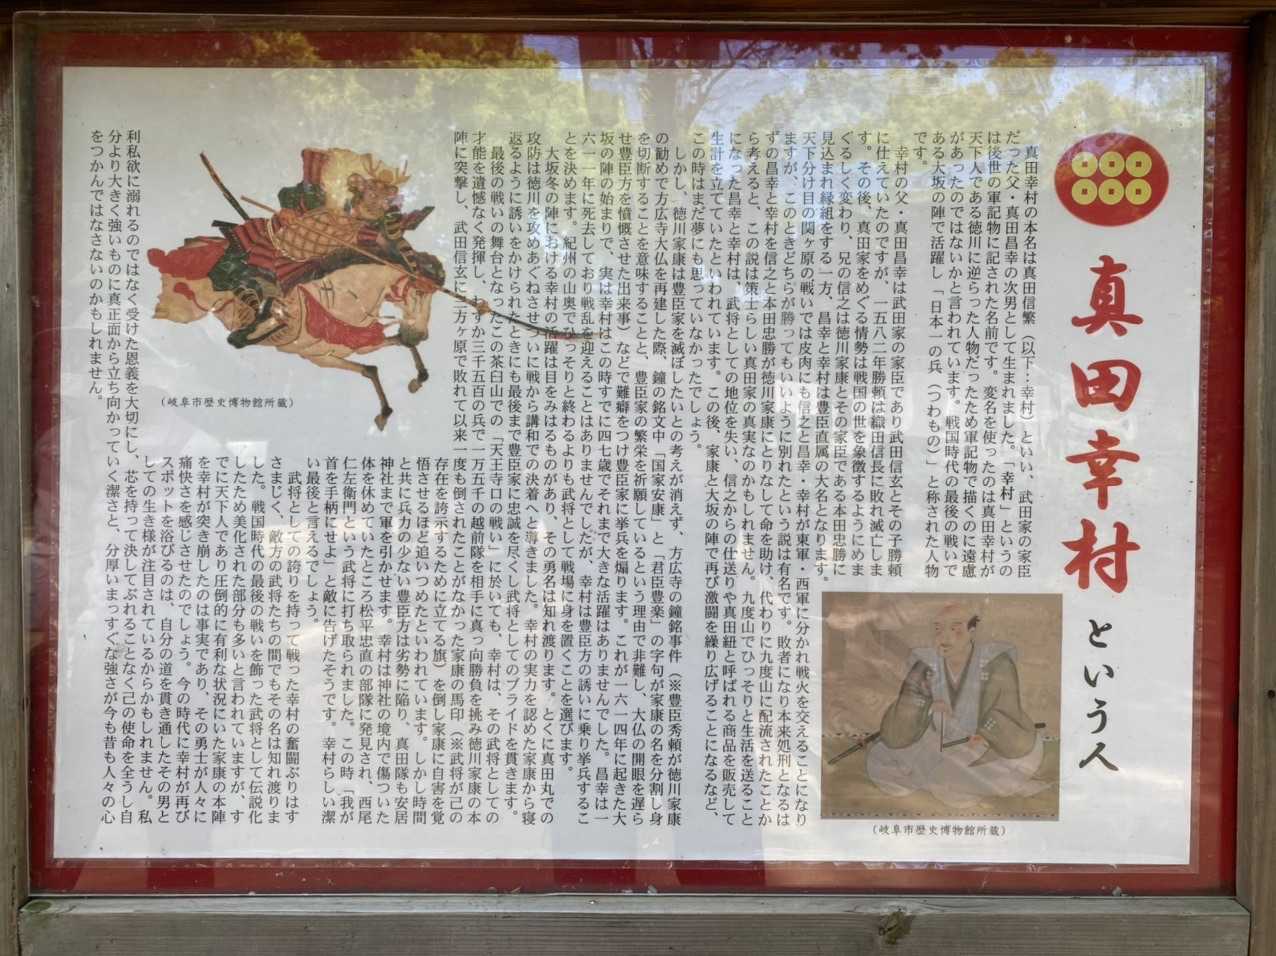 真田幸村という人
真田幸村の本名は真田信繁(以下:幸村)といい、武田家の家臣
だった父・真田昌幸の次男として生まれました。「幸村」という名
は後世の軍記物に記された名前です。変名を使ったのは真田幸村が
天下人である徳川に逆らった人物だったため軍記物で描くのに遠慮
があったのではないかと言われています。戦国時代の最後の戦いで
ある大坂の陣で活躍し「日本一の兵(つわもの)」と称された人物
です。
幸村の父・真田昌幸は武田家の家臣であり武田信玄とその子勝頼
に仕えていたのですが、一五八二年勝頼は織田信長に敗れ滅亡しま
す。その後、真田家をめぐる情勢は戦国の世を象徴するようにめま
ぐるしく変わり、兄の信之は徳川家康とその家臣である本田忠勝に
見込まれ縁組をする一方、昌幸と幸村は豊臣直属の大名となります。
天下分け目の関ヶ原の戦いでは皮肉にも信之と昌幸・幸村が東軍・西軍に分かれ戦火を交えることになり
ますが、このときどちらが勝ってもいいように別れたという説は有名です。敗者になり本来処刑となるは
ずの昌幸と幸村を信之と本田忠勝が徳川家康にとりなして命を助け、代わりに九度山に配流されたことか
ら考えると、この説は策士らしい真田家の真実なのかもしれません。九度山でひっそりと生活を送ること
になった昌幸と幸村は、武将としての地位を失い、信之からの仕送りや真田紐と呼ばれる商品を販売して
生計を立てていたといわれています。この後、家康と大坂の陣で再び激闘を繰り広げることになるなど、
この時はまだ夢にも思っていなかったことでしょう。
しかし、徳川家康は豊臣家を滅ぼしたいとの考えが消えず、方広寺の鐘銘事件(※豊臣秀頼が徳川家康
の勧めで方広寺大仏を再建した際、鐘の銘文中「国家安康」と「君臣豊楽」の字句が家康の名を分割し身
を切断することを意味すると、豊臣家の繁栄を祈願しているという理由で非難し、大仏の開眼を遅ら
せ豊臣方を憤慨させた出来事)などで難癖をつけ豊臣家に挙兵を煽ります。これが一六一四年に起きた大
坂の陣の始まりで、実は幸村はこの時すでに四七歳でそれまで大きな活躍はありませんでした。昌幸は一
六一一年に死去しており戦乱を迎えることはありませんでしたが、幸村は豊臣方の誘いに乗り挙兵するこ
とを決めます。紀州の山奥でひっそりと終わるよりも武将として戦場に身を置くことを選びます。
大坂冬の陣における幸村の活躍は目をみはるものがあり、その勇名は知れ渡ります。とくに真田丸での
攻防は徳川を攻めあぐねさせついに戦から講和での決着へと導きました。幸村の実力を認めた家康から寝
返るように誘いをかけられたときにも最後まで豊臣家に忠誠を尽くし武将としてのプライドを貫きます。
最後の戦いの舞台となったこの茶臼山での「天王寺口の戦い」に於いても、幸村は、その武将としての
才能を遺憾なく発揮し、わずか三千五百の兵で一万五千の越前隊を相手に真っ向勝負を挑み徳川家康の本
陣に突撃し、武田信玄に三方ヶ原で敗れて以来一度も倒されたことがなかった家康の馬印(※武将が己の
存在を誇示するために立てる旗)を倒し家康に自害を覚
悟させるほど追いつめたといわれています。しかし時間
と共に兵力の少ない豊臣方は劣勢に陥り、真田隊も安居
神社まで軍を引かせます。幸村は神社の境内で傷ついた
体を休めていたところ松平忠直の部隊に発見され、西尾
仁左衛門という武将に打ち取られました。この時、「我が
首を手柄にせよ」と敵に告げたそうです。幸村らしい潔
い最後と言えるでしょう。
武将としての誇りを持って戦った幸村の奮闘ぶりはす
さまじく、敵方の武将たちの間でもその名は知れ渡りま
した。戦国時代の最後の戦いを飾った武将として伝説化
したため美化された部分も多いと言われていますが、す
でに天下人であり圧倒的に有利な状況にいた家康の本陣
を幸村が突き崩したのは事実であり、その勇士が人々に
痛快さを感じさせたのでしょう。今の時代に幸村が再び
スポットを浴びるのは、自分の道を貫き通したその男と
しての生き様が注目されているからかもしれません。私
利私欲に溺れるのではなく受けた恩義を大切にし、芯を持って決してぶれることなく己の使命を全うし自
分より大きく強いものに真正面から立ち向かっていく潔さと、分厚いまっすぐな強さが今も昔も人々の心
をつかんではなさないのかもしれません。
(岐阜市歴史博物館所蔵)
(岐阜市歴史博物館所蔵)